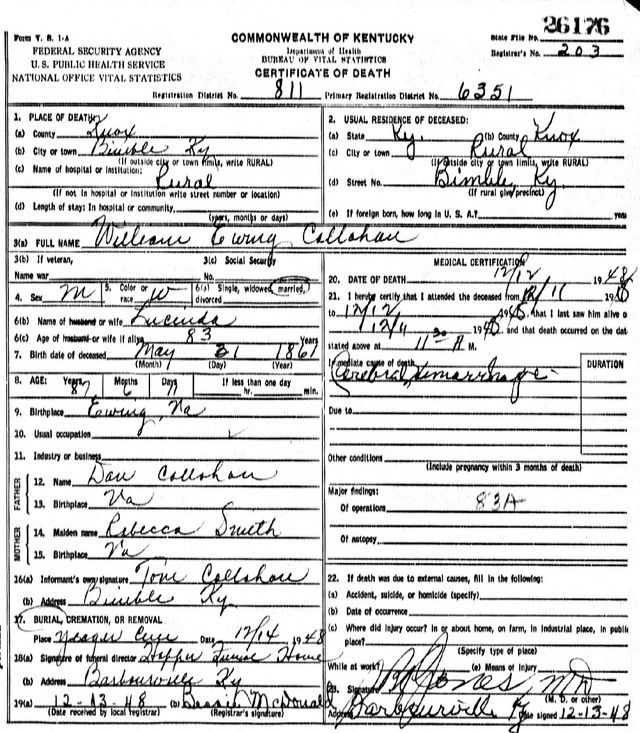 26176
Form V. S. 1-A
COMMONWEALTH OF KENTUCKY
State File No.
FEDERAL SECURITY AGENCY
Department of Health
Registrar's No. 203
U. S. PUBLIC HEALTH SERVICE
BUREAU OF VITAL STATISTICS
NATIONAL OFFICE VITAL STATISTICS
CERTIFICATE OF DEATH
Registration District No. 811 Primary Registration District No. 6351
1. PLACE OF DEATH
(a) County Knox
(b) City or town Bimble Ky
(If outside city or town limits, write RURAL)
(c) Name of hospital or institution:
Rural
(If not in hospital or institution write street number or location)
(d) Length of stay: In hospital or community,
(years, months or days)
2. USUAL RESIDENCE OF DECEASED:
(a) State Ky. (b) County Knox
(c) City or town Rural
(If outside city or town limits, write RURAL)
(d) Street No. Bimble, Ky.
(If rural give precinct)
(e) If foreign born, how long in U. S. A.? years
3(a) FULL NAME William Ewing Callahan
3(b) If veteran, 3(c) Social Security
Name war No.
4. Sex M 5. Color or race W 6(a) Single, widowed, married, divorced
6(b) Name of husband or wife Lucinda
6(c) Age of husband or wife if alive 83 Years
7. Birth date of deceased May 31 1861
(Month) (Day) (Year)
8. AGE: Years Months Days If less than one day
87 6 11 hr. min.
9. Birthplace Ewing, Va
10. Usual occupation
11. Industry or business
FATHER
12. Name Dan Callahan
13. Birthplace Va
MOTHER
14. Maiden name Rebecca Smith
15. Birthplace Va
16(a) Informant's own signature Tom Callahan
(b) Address Bimble Ky
17. BURIAL, CREMATION, OR REMOVAL
Place Yeager Cem Date 12/14 1948
18(a) Signature of funeral director Hopper Funeral Home
(b) Address Barbourville Ky
19(a) 12-13-48 (b) Bessie McDonald
(Date received by local registrar) (Registrar's signature)
MEDICAL CERTIFICATION
20. DATE OF DEATH 12/12 1948
21. I hereby certify that I attended the deceased from 12/11 1948
to 12/12 1948, that I last saw him alive on
12/11 1948, and that death occurred on the date
stated above at 11 30 A M.
Immediate cause of death DURATION
Cerebral Hemarrhage
Due to
Other conditions
(Include pregnancy within 3 months of death)
Major findings:
Of operations 83A
Of autopsy
22. If death was due to external causes, fill in the following:
(a) Accident, suicide, or homicide (specify)
(b) Date of occurrence
(c) Where did injury occur? In or about home, on farm, in industrial place, in public
place?
(Specify type of place)
While at work? (e) Means of injury
23. Signature Jones MD
(M. D. or other)
Address Barbourville Ky Date signed 12-13-48